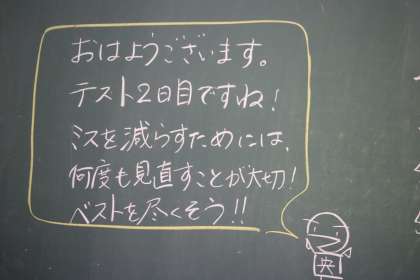 おはようございます。
テスト2日目ですね!
ミスを減らすためには、
何度も見直すことが大切!
ベストを尽くそう!!
央